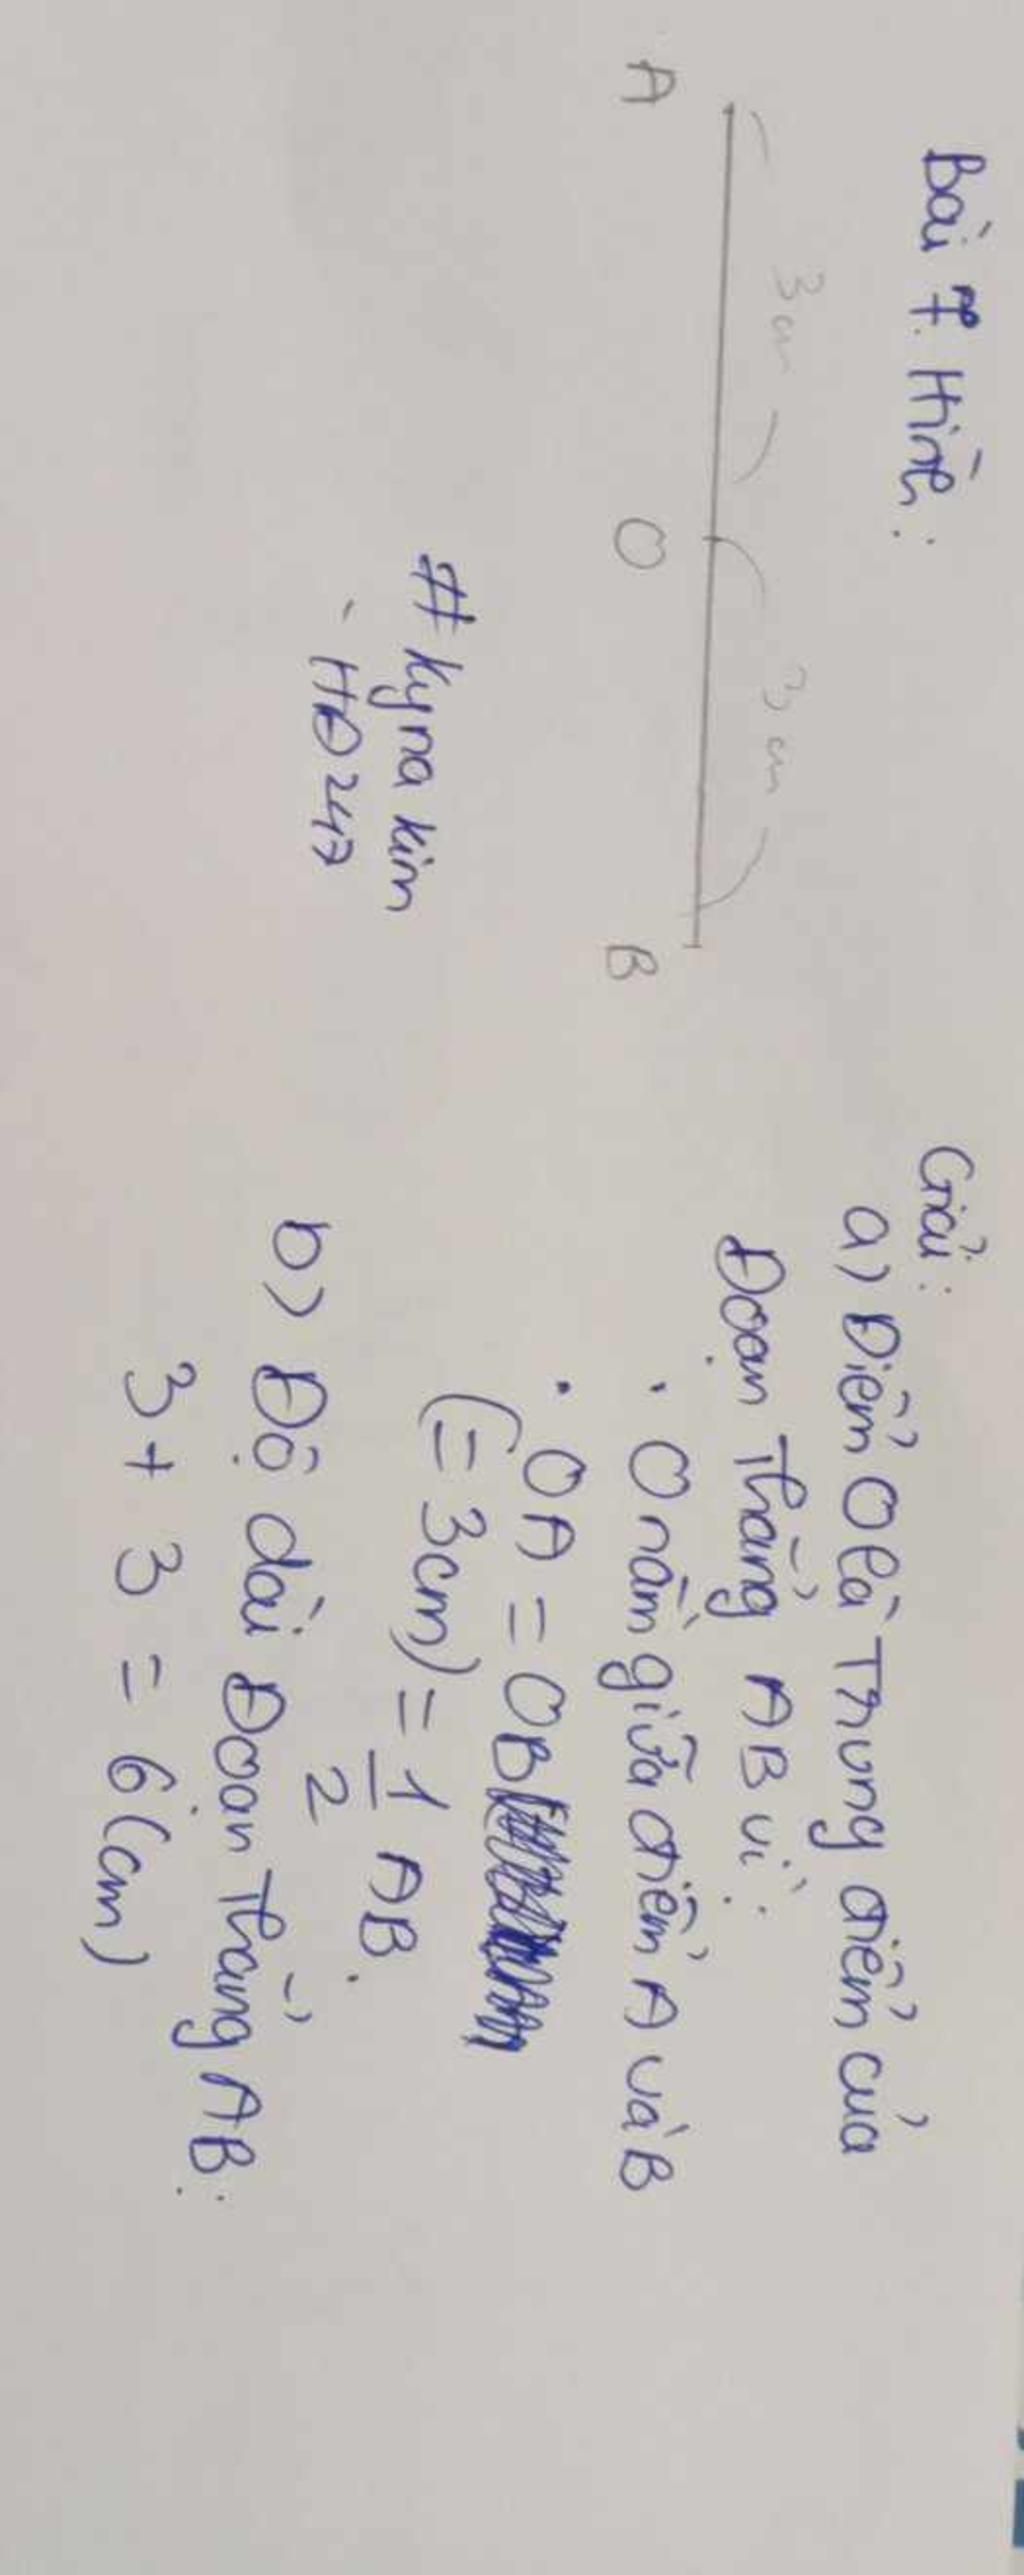 Bài 7. Hình:
3cm
3cm
A
O
B
# Kyna kim
- HĐ 247
Giải:
a) Điểm O là Trung điểm của
Đoạn Thẳng AB vì:
• O nằm giữa điểm A và B
• OA = OB
(= 3cm) = 1/2 AB.
b) Độ dài Đoạn Thẳng AB:
3 + 3 = 6 (cm)